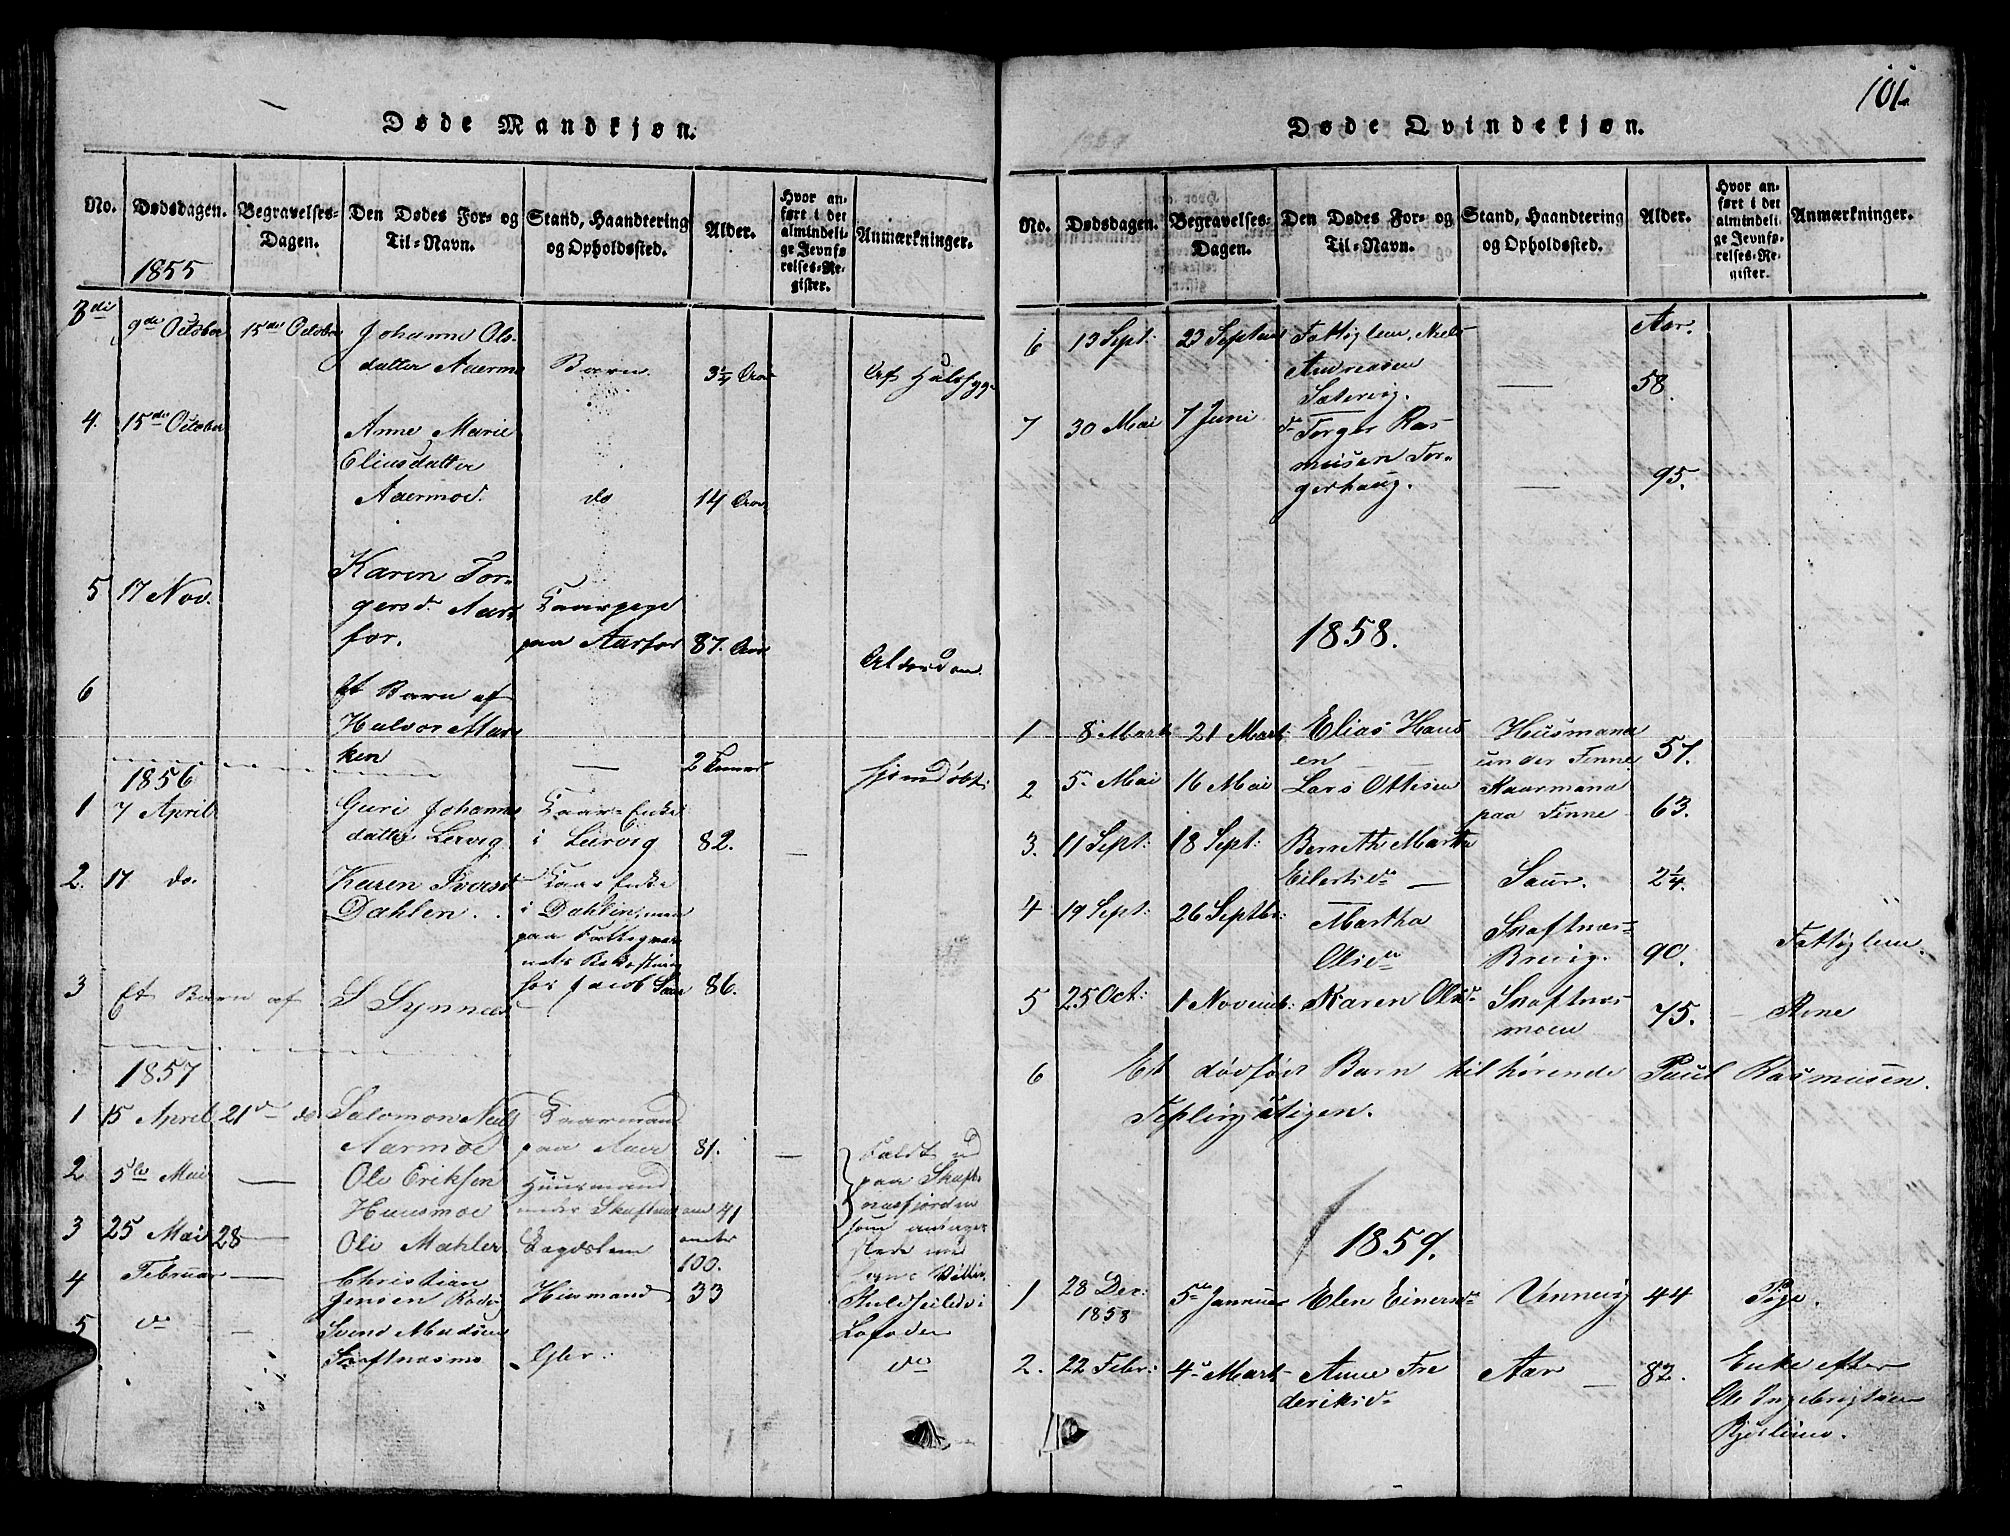 101.
Døde Mandkjøn.
No. Dødsdagen. Begravelses-Dagen. Den Dødes For- og Til-Navn. Stand, Haandtering og Opholdssted. Alder. Hvor anført i det almindelige Jevnførelses-Register. Anmærkninger.
1855
3die 9de October 15de October Johanne Ols-
datter Aarmo Barn 3¼ Aar Af Halssyge
4. 15de October Anne Marie
Eliasdatter
Aarmod. do 14 Aar
5 17 Nov. Karen Tor-
gersd. Aar-
for. Kaarpige
paa Aarfor 87. Aar Alderdom
6 Et Barn af
Halvor
ken — 2 hjemdøbt
1856
1 7 April Guri Johannes
datter Lervig Kaar-Enke
i Lervig 82. —
2. 17 do. Karen Iversd
Dahlen. Kaar Enke
i Dahlen, men
paa Fattigvæs-
nets Bekostning
hos Jacob Saur 86.
3 Et Barn af S Synnes
1857
1 15 April 21de do Salomon Niels
Aarmoe Kaarmand
paa Aar 81. —
2 5te Mai — Ole Eriksen
Huusmoe Huusmand
under Skaftnes 41 Faldt ud
paa Skaft-
næsfjorden
som antages
3 25 Mai 28 — Ole Mahler Lægdslem
100.
4 Februar — Christian
Jensen Huusmand 33 Kuldseiled i
Lofoden
5 do — Svend
Skaftnæsmo do
Døde Qvindekjøn.
No. Dødsdagen. Begravelses-Dagen. Den Dødes For- og Til-Navn. Stand, Haandtering og Opholdssted. Alder. Hvor anført i det almindelige Jevnførelses-Register. Anmærkninger.
6 13 Sept: 23 Septem Fattiglem, Niels
Andreasen
Sætervig. — Aar.
58.
7 30 Mai 7 Juni Torger Ras-
musen Tor-
gerhaug. — 95.
1858.
1 8 Mart 21 Mart: Elias Hans
en — Huusmand
under Finne 57.
2 5 Mai 16 Mai Lars Ottesen Kaarmand
paa Finne 63.
3. 11 Sept: 18 Sept: Bereth Martha
Eilertsdr — Saur. 2¼.
4 19 Sept: 26 Septbr: Martha
Olsdr Skaftnes-
Brevig. 90. Fattiglem.
5 25 Oct: 1 Novemb: Karen Olsdr Skaftnes
moen 75. — Kone
6 Et dødfødt Barn tilhørende Paul Rasmusen.
1859.
1 28 Dec:
1858 5te Januar Elen Einersdr Vennevig 44 Pige.
2. 22 Febr: 4de Mart Anne Fre
deriksdr Aar — 82. Enke efter
Ole Ingebrigtsen